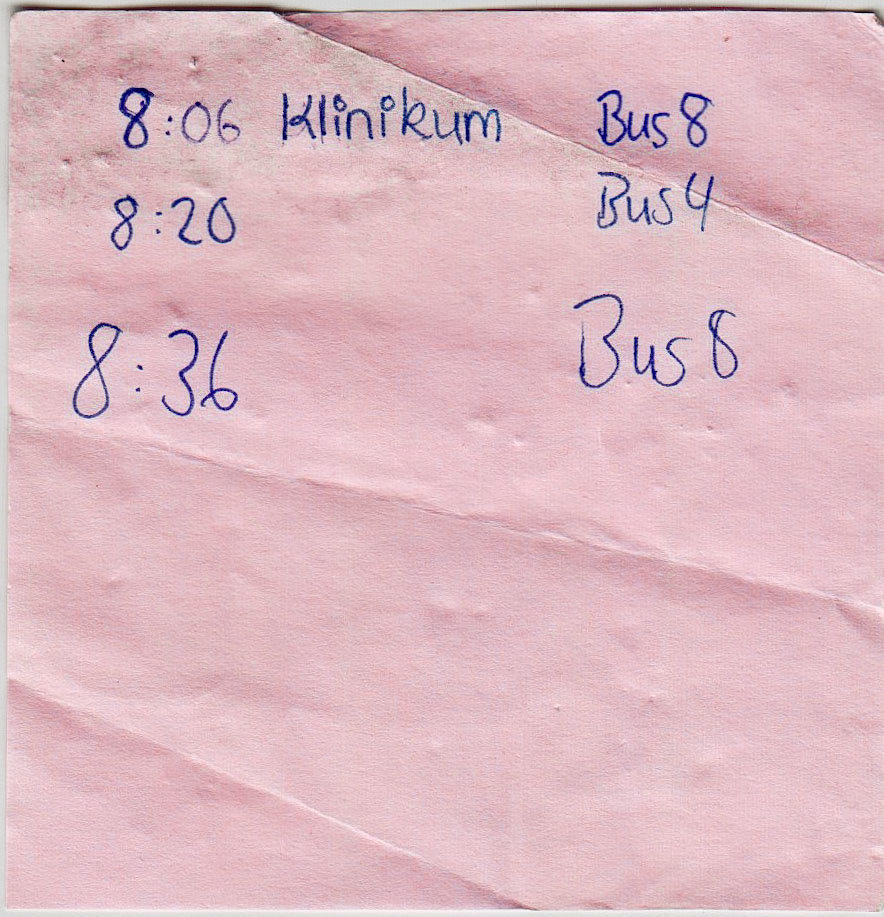 8:06 Klinikum Bus 8
8:20 Bus 4
8:36 Bus 8